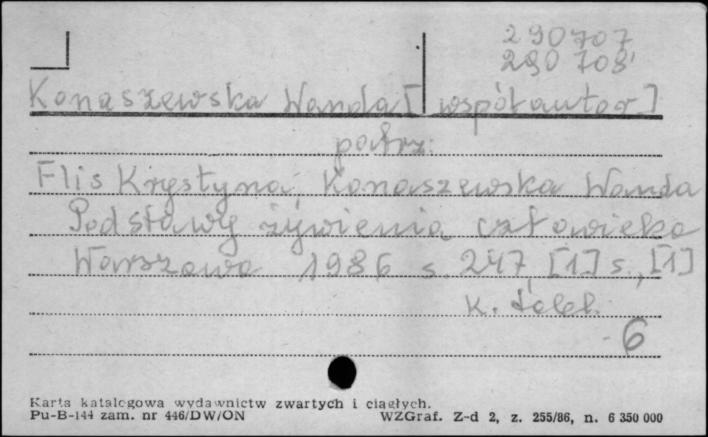 290707
290708
Konaszewska Wanda [współautor]
patrz:
Flis Krystyna, Konaszewska Wanda
Podstawy żywienia człowieka
Warszawa 1986 s. 247 [1] s., [1]
k. tabl.
6
Karta katalogowa wydawnictw zwartych i ciągłych.
Pu-B-144 zam. nr 446/DW/ON WZGraf. Z-d 2, z. 255/86, n. 6 350 000